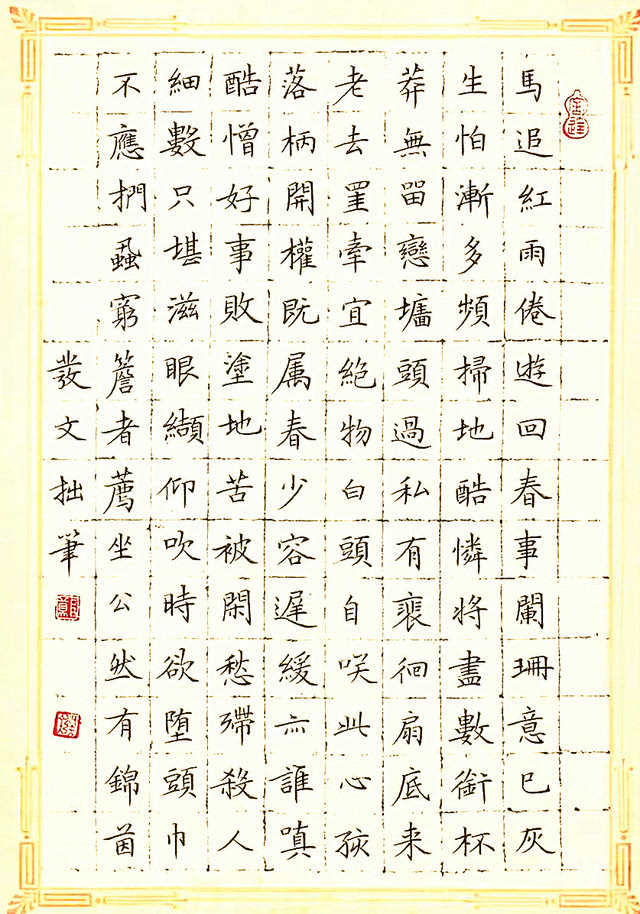 馬追紅雨倦遊回春事闌珊意已灰
生怕漸多頻掃地酷憐將盡數銜杯
莽無留戀墻頭過私有裴徊扇底来
老去罣牽宜絕物白頭自咲此心孩
落柄開權既属春少容遲緩亦誰嗔
酷憎好事敗塗地苦被閑愁殢殺人
細數只堪滋眼纈仰吹時欲堕頭巾
不應捫蝨窮簷者薦坐公然有錦茵
發文拙筆